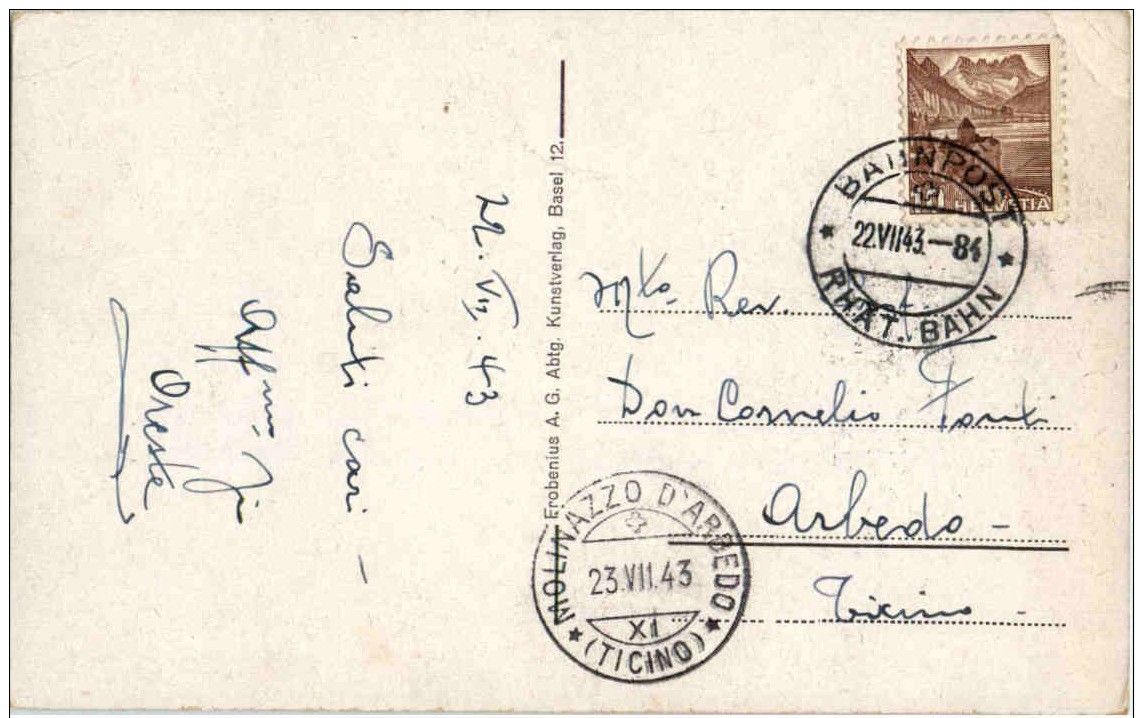 22.VII.43
Saluti cari –
Aff.mo
Oreste
Frobenius A. G. Abtg. Kunstverlag, Basel 12.
HELVETIA
BAHNPOST
22.VII 43.–84
RHÄT. BAHN
Mto Rev.
Don Cornelio
Arbedo –
Ticino –
MOLINAZZO D'ARBEDO
23.VII.43
XI
(TICINO)